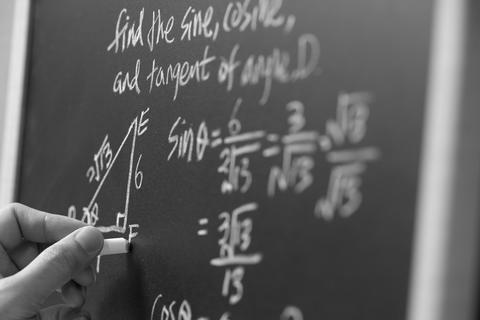 find the sine, cosine,
and tangent of angle D.
E
2√13
6
θ
F
sinθ = 6/2√13 = 3/√13 · √13/√13
= 3√13/13
cosθ